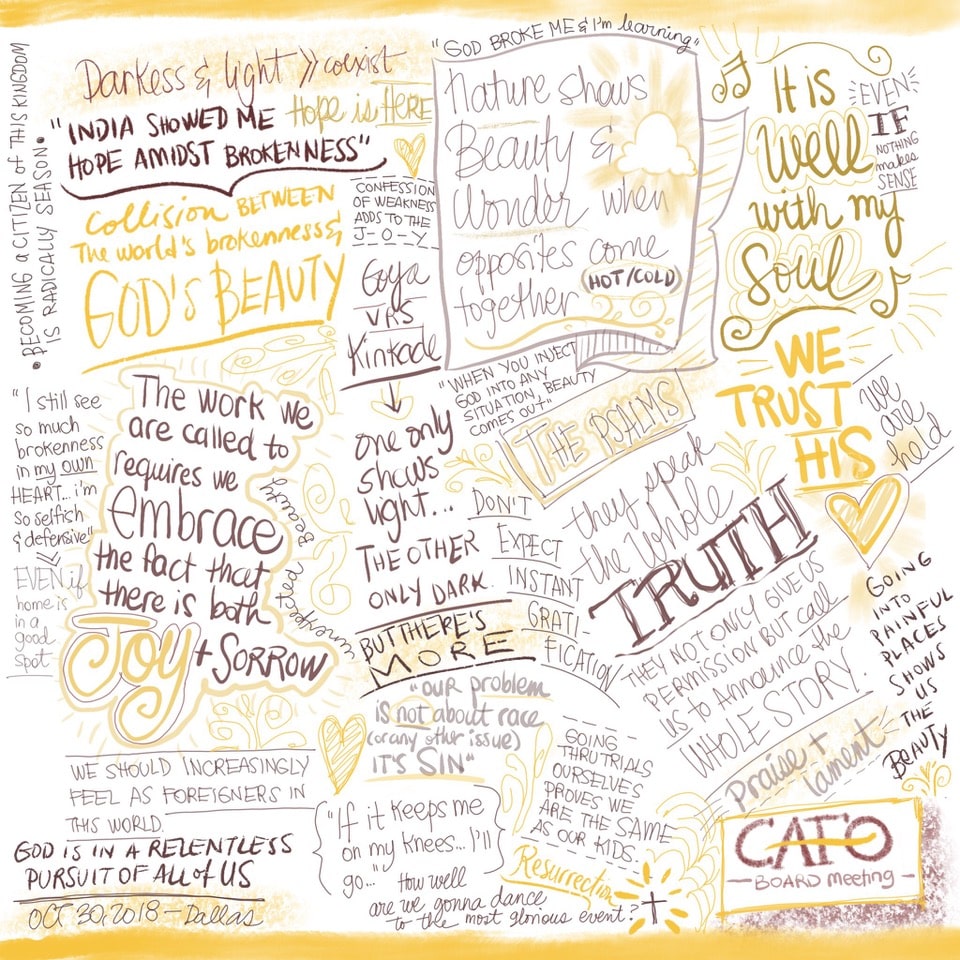 • BECOMING A CITIZEN of THIS KINGDOM
IS RADICALLY SEASON •
Darkess & light >> coexist
Hope is HERE
"INDIA SHOWED ME
HOPE AMIDST BROKENNESS"
Collision BETWEEN
The world's brokenness &
GOD'S BEAUTY
CONFESSION
OF WEAKNESS
ADDS TO THE
J-O-Y
Goya
VRS
Kinkade
one only
shows
light...
THE OTHER
ONLY DARK.
BUT THERE'S
MORE
"GOD BROKE ME & I'm learning"
Nature shows
Beauty &
Wonder when
opposites come
together (HOT/COLD)
"WHEN YOU INJECT
GOD INTO ANY
SITUATION, BEAUTY
COMES OUT"
It is
Well
with my
Soul
EVEN
IF
NOTHING
makes
SENSE
WE
TRUST
HIS
We
are
held
"I still see
so much
brokenness
in my own
HEART... i'm
so selfish
& defensive"
<<
EVEN if
home is
in a
good
spot
The work we
are called to
requires we
embrace
the fact that
there is both
Joy + SORROW
unexpected Beauty
DON'T
EXPECT
INSTANT
GRATI-
FICATION
THE PSALMS
they speak
the whole
TRUTH
THEY NOT ONLY GIVE US
PERMISSION BUT call
US to ANNOUNCE the
WHOLE STORY.
Praise +
lament
GOING
INTO
PAINFUL
PLACES
SHOWS
US
THE
BEAUTY
"OUR problem
IS not about race
(or any other issue)
IT'S SIN"
GOING
THRU TRIALS
OURSELVES
PROVES WE
ARE THE SAME
AS OUR KIDS.
WE SHOULD INCREASINGLY
FEEL AS FOREIGNERS IN
THIS WORLD.
GOD IS IN A RELENTLESS
PURSUIT OF ALL of US
OCT 30, 2018 — Dallas
"If it keeps me
on my knees... I'll
go..."
How well
are we gonna dance
to the most glorious event?
Resurrection
CAFO
— BOARD meeting —